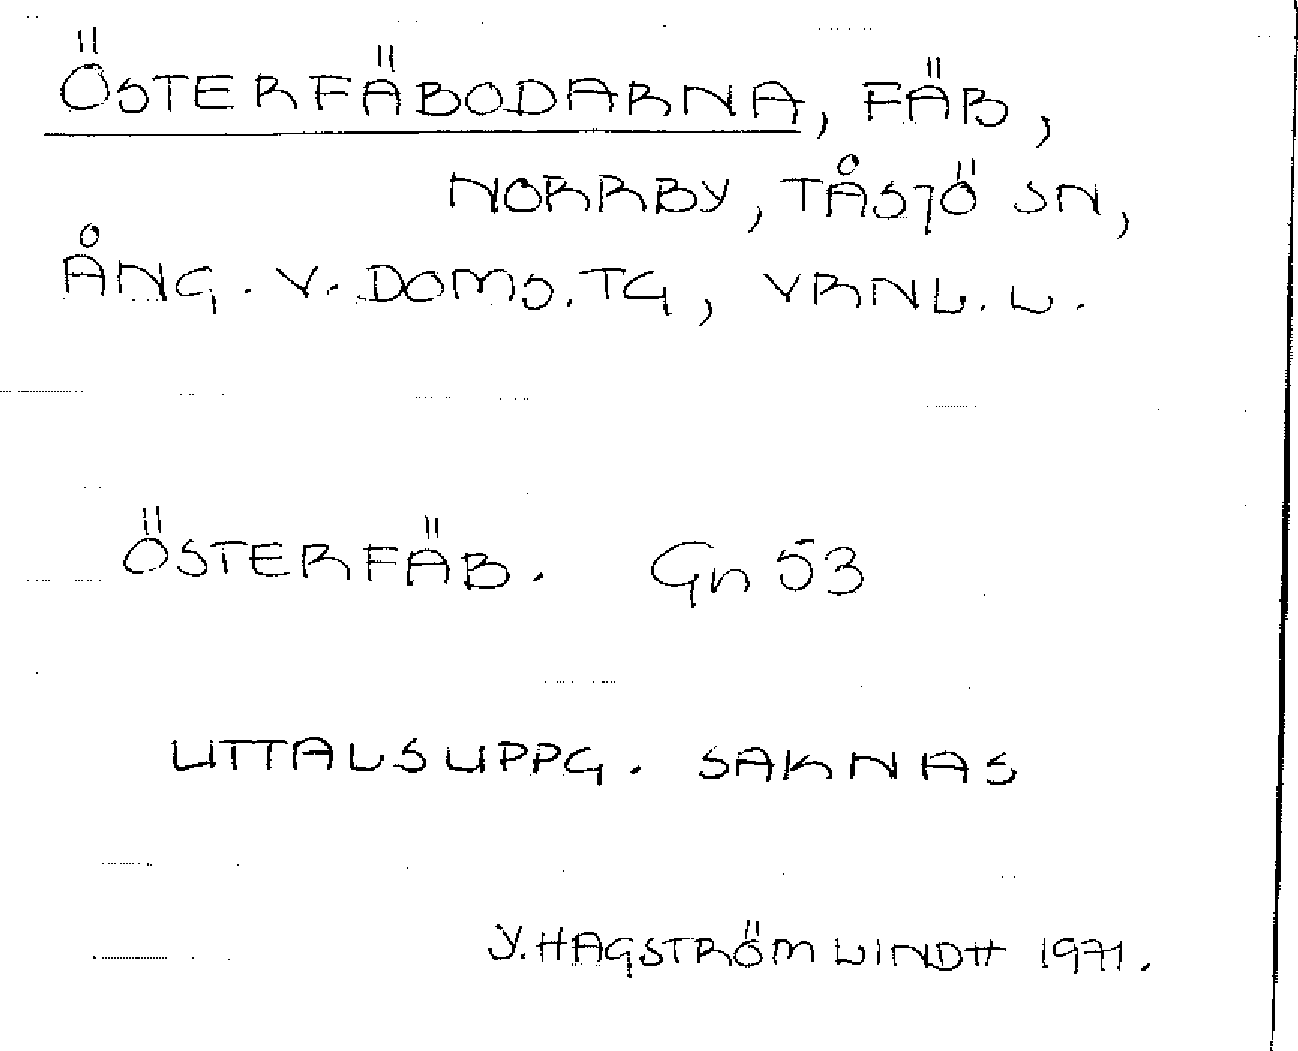 ÖSTERFÄBODARNA, FÄB,
NORRBY, TÅSJÖ SN,
ÅNG. V. DOMS. TG, VRNL. L.
ÖSTERFÄB. Gn 53
UTTALSUPPG. SAKNAS
Y. HAGSTRÖM LINDH 1971.